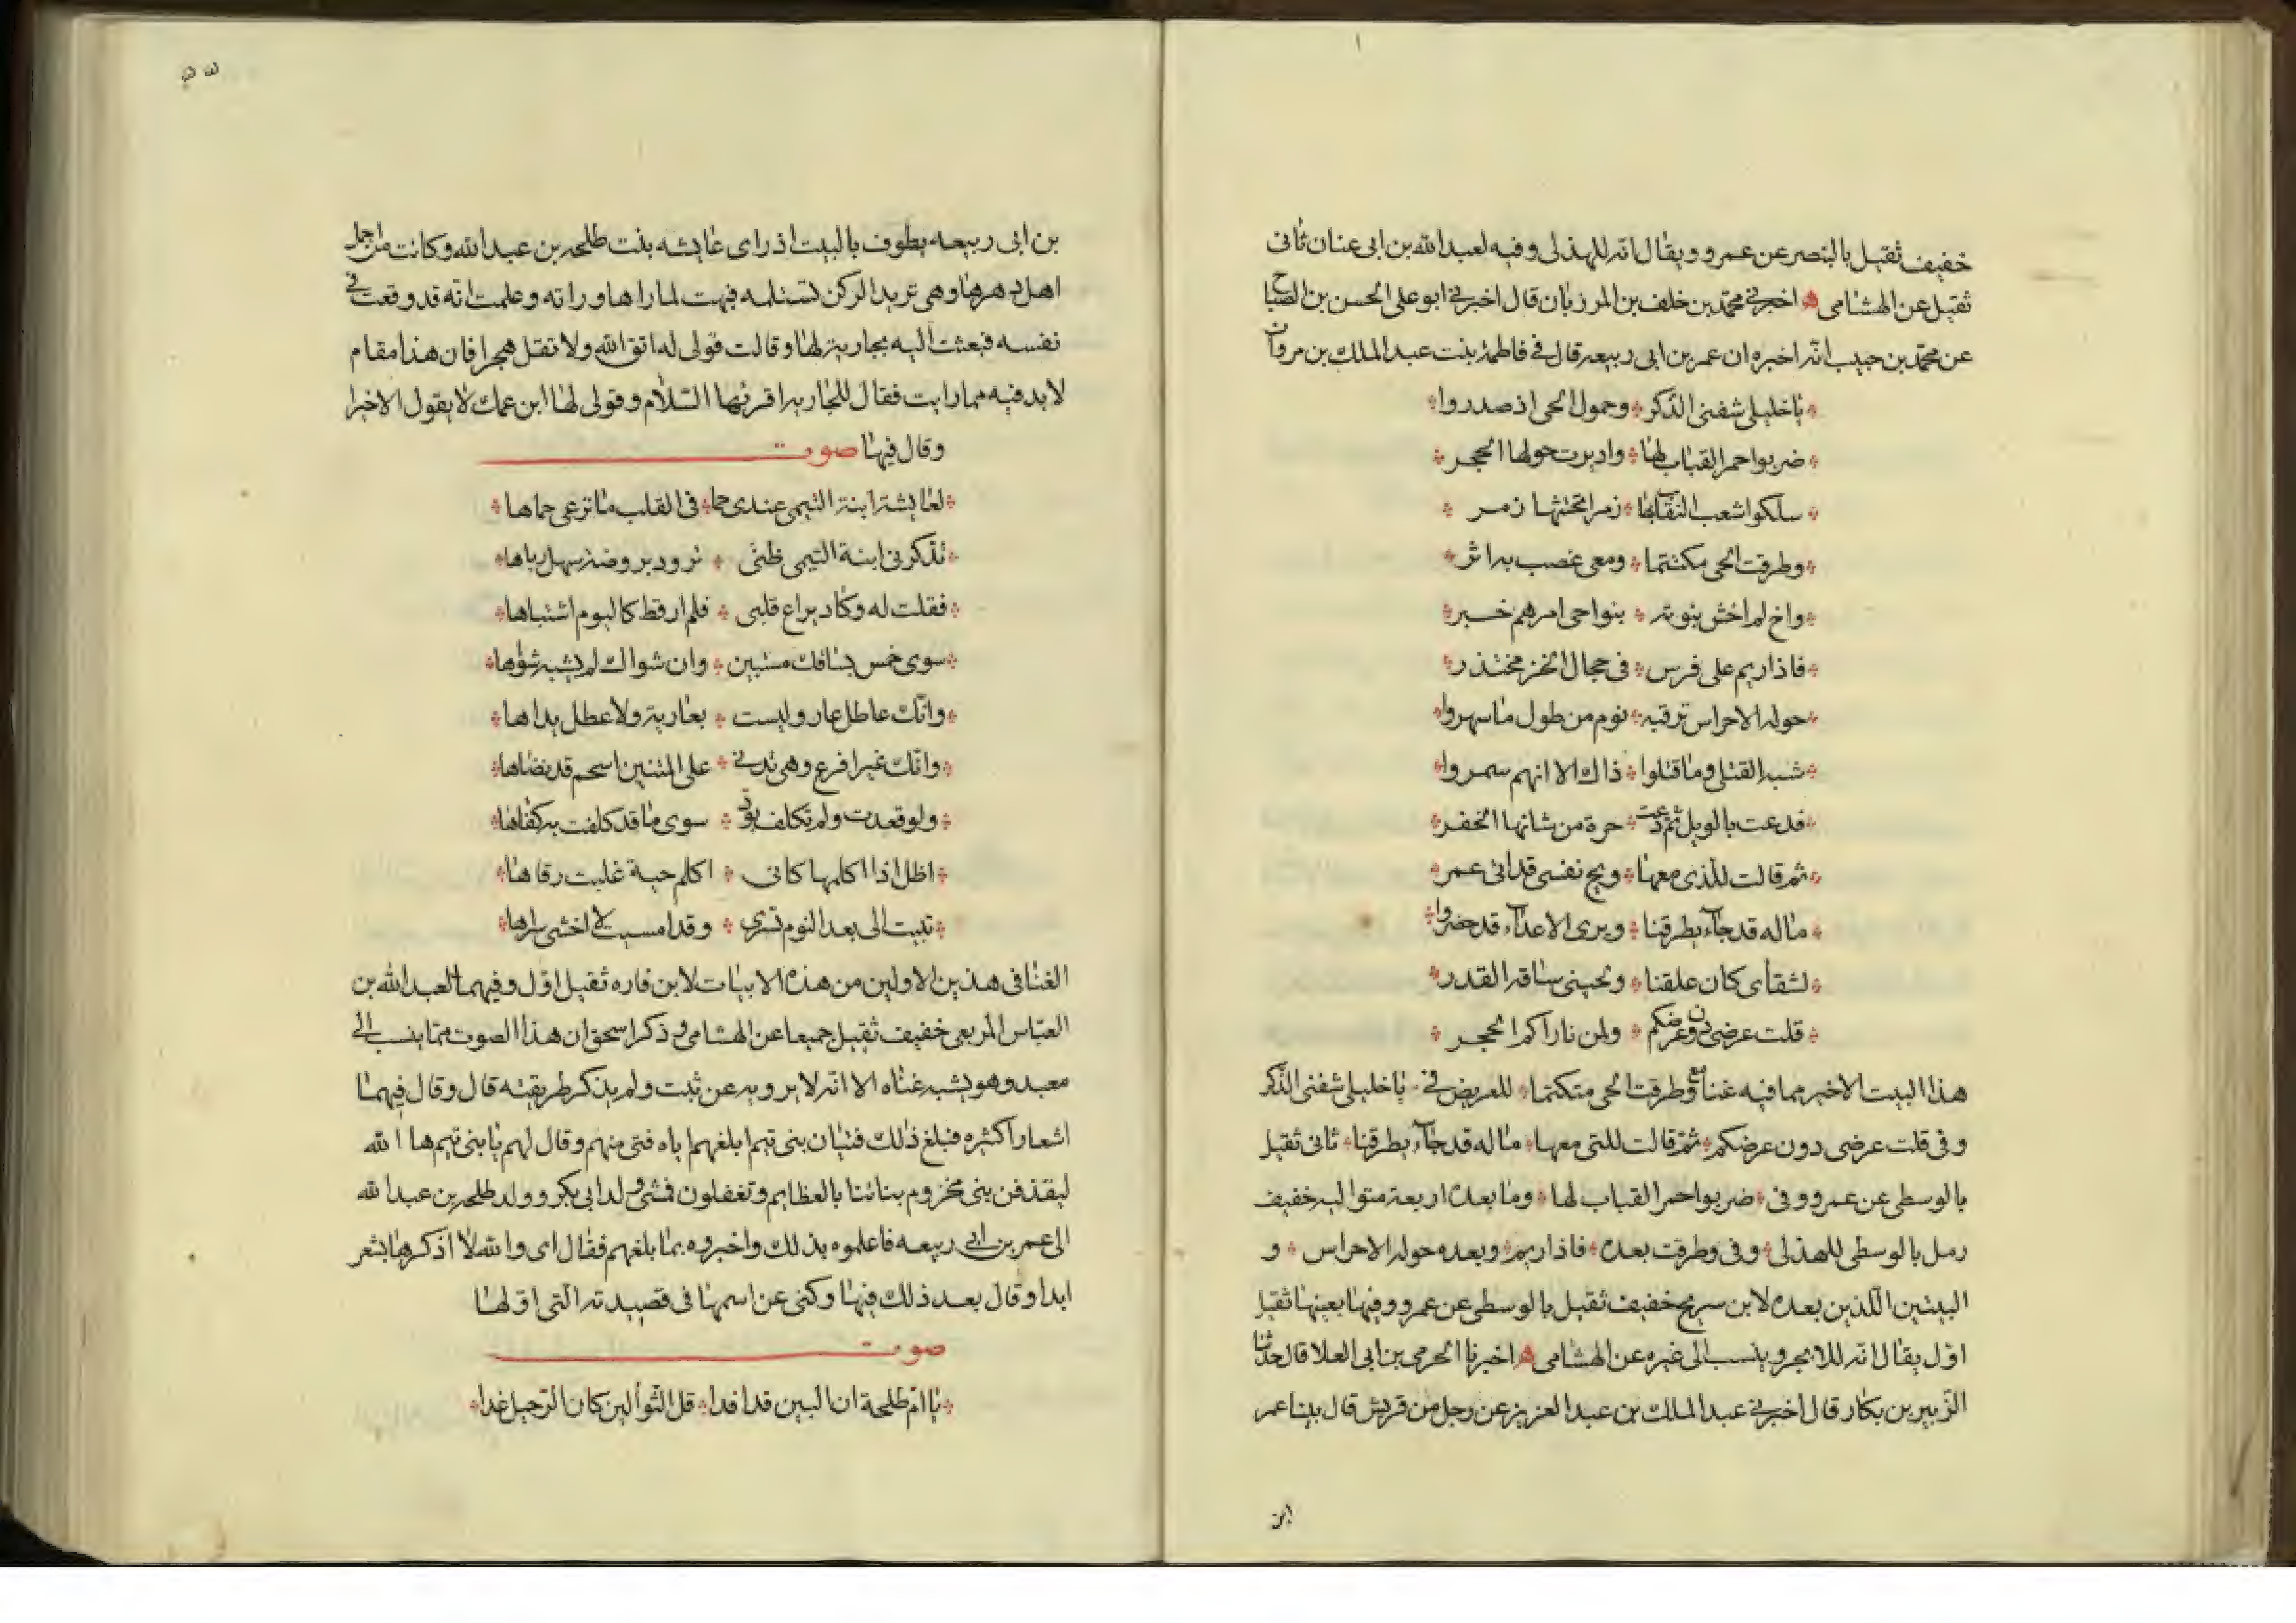 خفيف ثقيل بالبنصر عن عمرو ويقال انه للهذلى وفيه لعبد الله بن ابى عنان ثانى
ثقيل عن الهشامى ه اخبرنى محمد بن خلف بن المرزبان قال اخبرنى ابو على الحسن بن الصباح
عن محمد بن حبيب انه اخبره ان عمر بن ابى ربيعه قال فى فاطمة بنت عبد الملك بن مروان
يا خليلى شفنى الذكر * وحمول الحى اذ صدروا
ضربوا حمر القباب لها * واديرت حولها الحجر
سلكوا شعب النقاب بها * زمرا تحتثها زمر
وطرقت الحى مكتتما * ومعى عضب به اثر
واخ لم اخش نبوته * بنواحى امرهم خبر
فاذا ريم على فرس * فى حجال الخز مختدر
حوله الاحراس ترقبه * نوم من طول ما سهروا
شبه القتلى وما قتلوا * ذاك الا انهم سمروا
فدعت بالويل ثم دعت * حرة من شانها الخفر
ثم قالت للذى معها * ويح نفسى قد اتى عمر
ما له قد جاء يطرقنا * ويرى الاعداء قد حضروا
لشقاى كان علقنا * ولحينى ساقه القدر
قلت عرضى دون عرضكم * ولمن ناراكم الحجر
هذا البيت الاخير مما فيه غنا مع وطرقت الحى متكتما * للغريض فى * يا خليلى شفنى الذكر
وفى قلت عرضى دون عرضكم * ثم قالت للتى معها * ما له قد جاء يطرقنا * ثانى ثقيل
بالوسطى عن عمرو وفى * ضربوا حمر القباب لها * وما بعده اربعة متواليه خفيف
رمل بالوسطى للهذلى * وفى وطرقت بعده * فاذا ريم * وبعده حوله الاحراس * و
البيتين اللذين بعده لابن سريج خفيف ثقيل بالوسطى عن عمرو وفيها بعينها ثقيل
اول يقال انه للابجر وينسب الى غيره عن الهشامى ه اخبرنا الحرمى بن ابى العلا قال حدثنا
الزبير بن بكار قال اخبرنى عبد الملك بن عبد العزيز عن رجل من قريش قال بينا عمر
ابن
بن ابى ربيعه يطوف بالبيت اذ راى عايشه بنت طلحه بن عبد الله وكانت من اجمل
اهل دهرها وهى تريد الركن تستلمه فبهت لما راها وراته وعلمت انه قد وقعت فى
نفسه فبعثت اليه بجارية لها وقالت قولى له اتق الله ولا تقل هجرا فان هذا مقام
لا بد فيه مما رايت فقال للجاريه اقرئيها السلام وقولى لها ابن عمك لا يقول الا خيرا
وقال فيها صوت
لعايشة ابنة التيمى عندى حما * فى القلب ما ترعى حماها
تذكرنى ابنة التيمى ظبى * ترود بروضة سهل رباها
فقلت له وكاد يراع قلبى * فلم ار قط كاليوم اشتباها
سوى خمس بساقك مستبين * وان شواك لم يشبه شواها
وانك عاطل عار وليست * بعارية ولا عطل يداها
وانك غير افرع وهى تدنى * على المتنين اسحم قد نضاها
ولو قعدت ولم تكلف بود * سوى ما قد كلفت به كفاها
اظل اذا اكلمها كانى * اكلم حية غلبت رقاها
تبيت الى بعد النوم تسرى * وقد امسيت لا اخشى سراها
الغنا فى هذين الاولين من هذه الابيات لابن فاره ثقيل اول وفيهما لعبد الله بن
العباس الربعى خفيف ثقيل جميعا عن الهشامى وذكر اسحق ان هذا الصوت مما ينسب الى
معبد وهو يشبه غناه الا انه لا يرويه عن ثبت ولم يذكر طريقته قال وقال فيهما
اشعارا كثيره فبلغ ذلك فتيان بنى تيم ابلغهم اياه فتى منهم وقال لهم يا بنى تيم ها الله
ليقذفن بنى مخزوم بناتنا بالعظايم وتغفلون فمشى ولد ابى بكر وولد طلحه بن عبد الله
الى عمر بن ابى ربيعه فاعلموه بذلك واخبروه بما بلغهم فقال اى والله لا اذكرها بشعر
ابدا وقال بعد ذلك فيها وكنى عن اسمها فى قصيدته التى اولها
صوت
يا ام طلحة ان البين قد افدا * قل الثوا لين كان الرحيل غدا